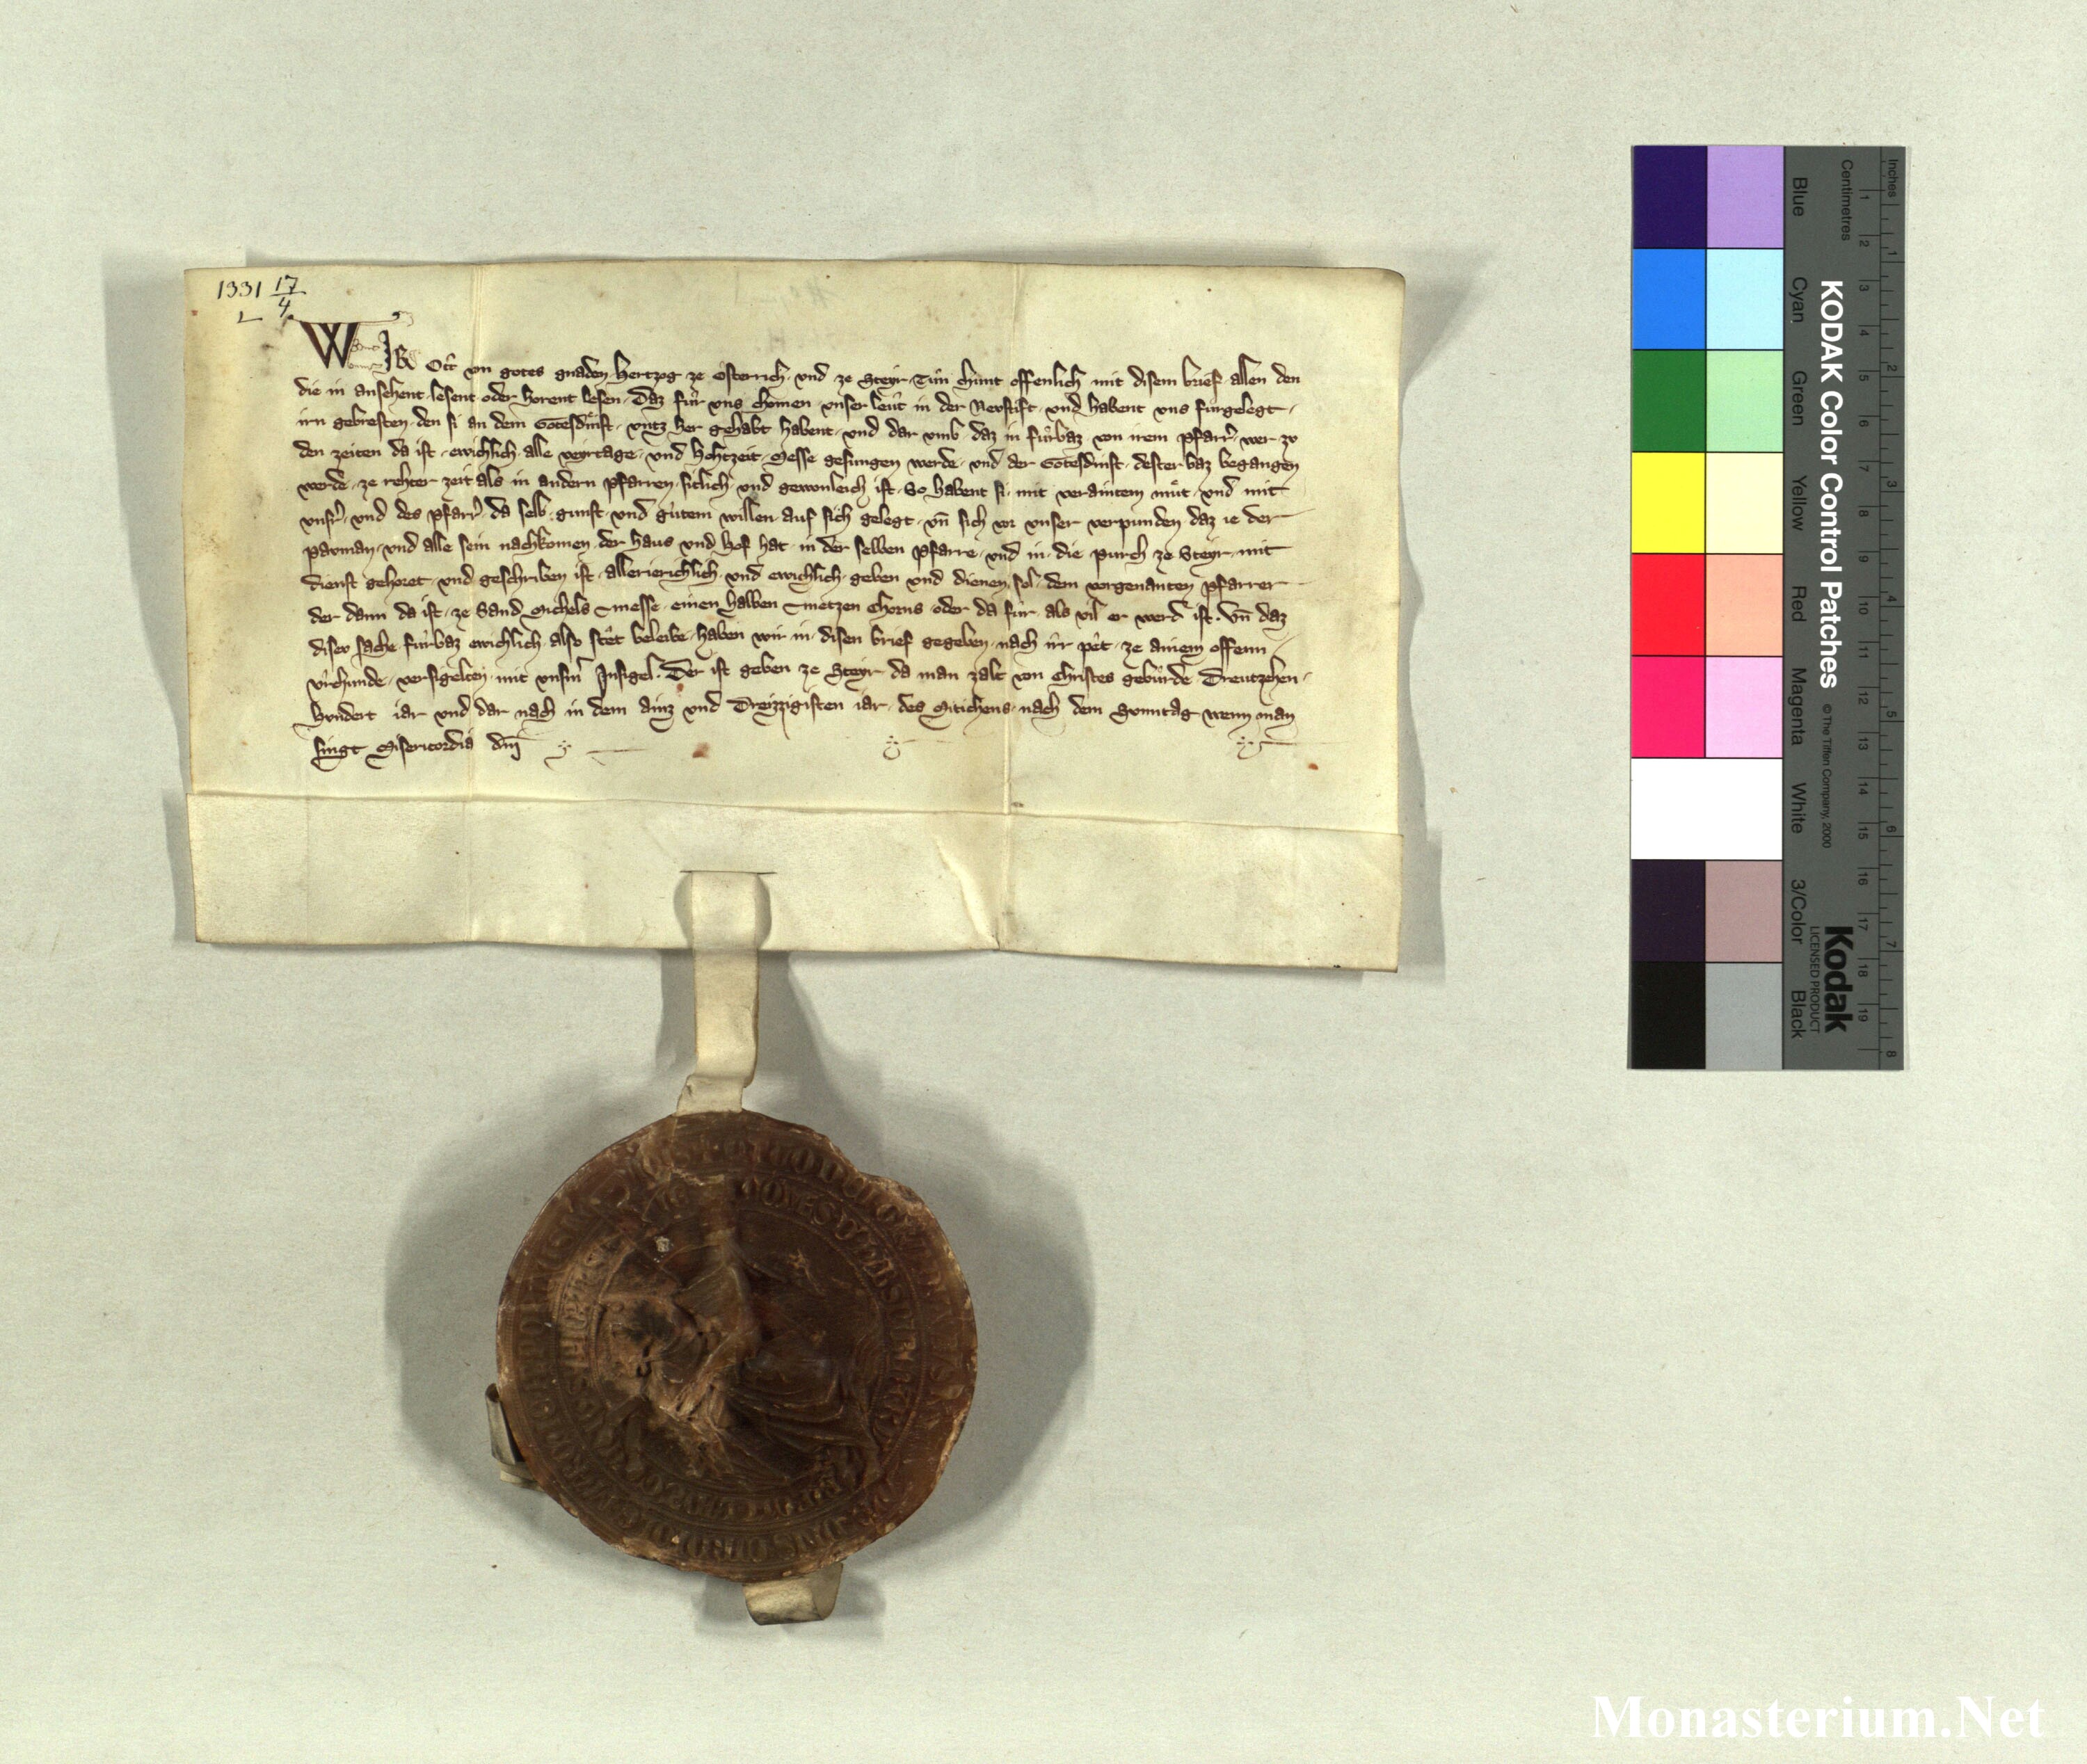 1331 17/4
L
WIR Ott von gotes gnaden Hertzog ze Osterrich vnd ze Steyr Tun chunt offenlich mit disem brief allen den
die in ansehent lesent oder horent lesen, Daz fur vns chomen vnser leut in der Newstift vnd habent vns furgelegt
irn gebresten den si an dem Gotesdinst vntz her gehabt habent, vnd dar vmb daz in furbaz von irem pfarr wer zv
den zeiten da ist ewichlich alle veyrtage vnd Hohtzeit Messe gesungen werde vnd der Gotesdinst dester baz begangen
werde ze rehter zeit als in andern pfarren sitlich vnd gewonleich ist, So habent si mit veraintem müt vnd mit
vnsr vnd des pfarr da selb gunst vnd gutem willen auf sich gelegt vn sich vor vnser verpunden daz ie der
pawman vnd alle sein nachkomen der haus vnd Hof hat in der selben pfarre vnd in die purch ze Steyr mit
dienst gehoret vnd geschriben ist allerierichlich vnd ewichlich geben vnd dienen sol dem vorgenanten pfarrer
der dann da ist ze Sand Michels messe einen halben metzen Chorns oder da fur als vil er werd ist. Vn daz
disev sache furbaz ewichlich also stet beleibe haben wir in disen brief gegeben nach irr pet ze ainem offenn
vrchunde versigelten mit vnsm Insigel. Der ist geben ze Steyr da man zalt von Christes geburde Dreutzehen
Hundert iar vnd dar nach in dem ainz vnd Dreizzigisten iar des Mitichens nach dem Svnntag wenn man
singt Misericordia dni
KODAK Color Control Patches
© The Tiffen Company, 2000
Kodak
LICENSED PRODUCT
Inches
Centimetres
1 2 3 4 5 6 7 8 9 10 11 12 13 14 15 16 17 18 19
1 2 3 4 5 6 7 8
Blue
Cyan
Green
Yellow
Red
Magenta
White
3/Color
Black
Monasterium.Net